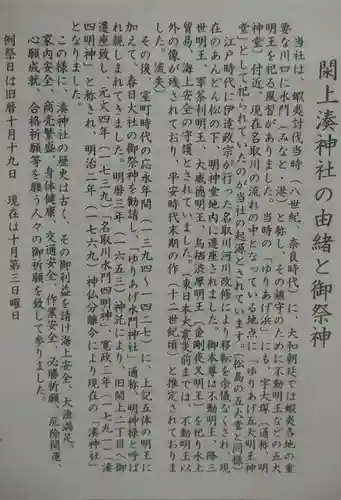 閖上湊神社の由緒と御祭神
当社は、蝦夷討伐当時（八世紀、奈良時代）に、大和朝廷では蝦夷各地の重
要な川口に水門（みなと、港）と称し、その鎮守のために不動明王などの五大
明王を祀る風習がありました。当時の「ゆりあげ浜」にも、字大塚（通称、明
神堂）付近、現在名取川の流れの中となっている地点に「ゆりあげ五大明王神
堂」として祀られていたのが当社の起源とされています。（松島の五大堂と同様）
江戸時代に伊達政宗が行った名取川河川改修により移転を余儀なくされ、現
在のあんどん松の下、明神堂地内に遷座されました。御本尊は不動明王、降三
世明王、軍荼利明王、大威徳明王、烏枢渋摩明王（金剛夜叉明王）を祀り水上
貿易、海上安全の守護とされていました。（東日本大震災前までは、不動明王以
外の像が残されており、平安時代末期の作（十二世紀頃）と推定されておりま
した。流失）
その後、室町時代の応永年間（一三九四〜一四二七）に、上記五体の明王に
加えて、春日大社の御祭神を勧請し、「ゆりあげ水門神社」通称、明神様と呼ば
れ親しまれてきました。明暦三年（一六五三）神託により、旧閖上二丁目へ御
遷座致し、元文四年（一七三九）「名取川水門四明神」、寛政三年（一七九一）「湊
四明神」と称され、明治二年（一七六九）神仏分離令により現在の「湊神社」
となりました。
この様に、湊神社の歴史は古く、その御利益を請け海上安全、大漁満足、
家内安全、商売繁盛、身体健康、交通安全、作業安全、必勝祈願、厄除開運、
心願成就、合格祈願等を願う人々の御祈願を致して参りました。
例祭日は旧暦十月十九日　現在は十月第三日曜日